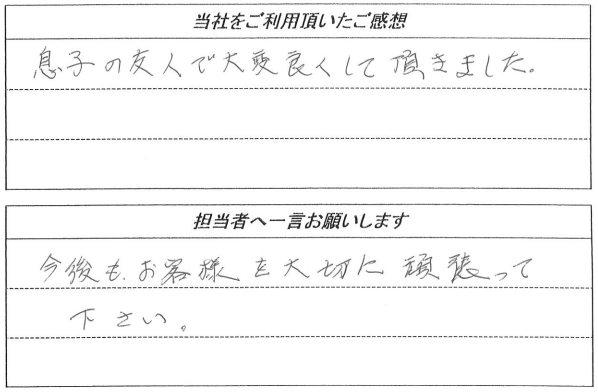 当社をご利用頂いたご感想
息子の友人で大変良くして頂きました。
担当者へ一言お願いします
今後も、お客様を大切に頑張って
下さい。